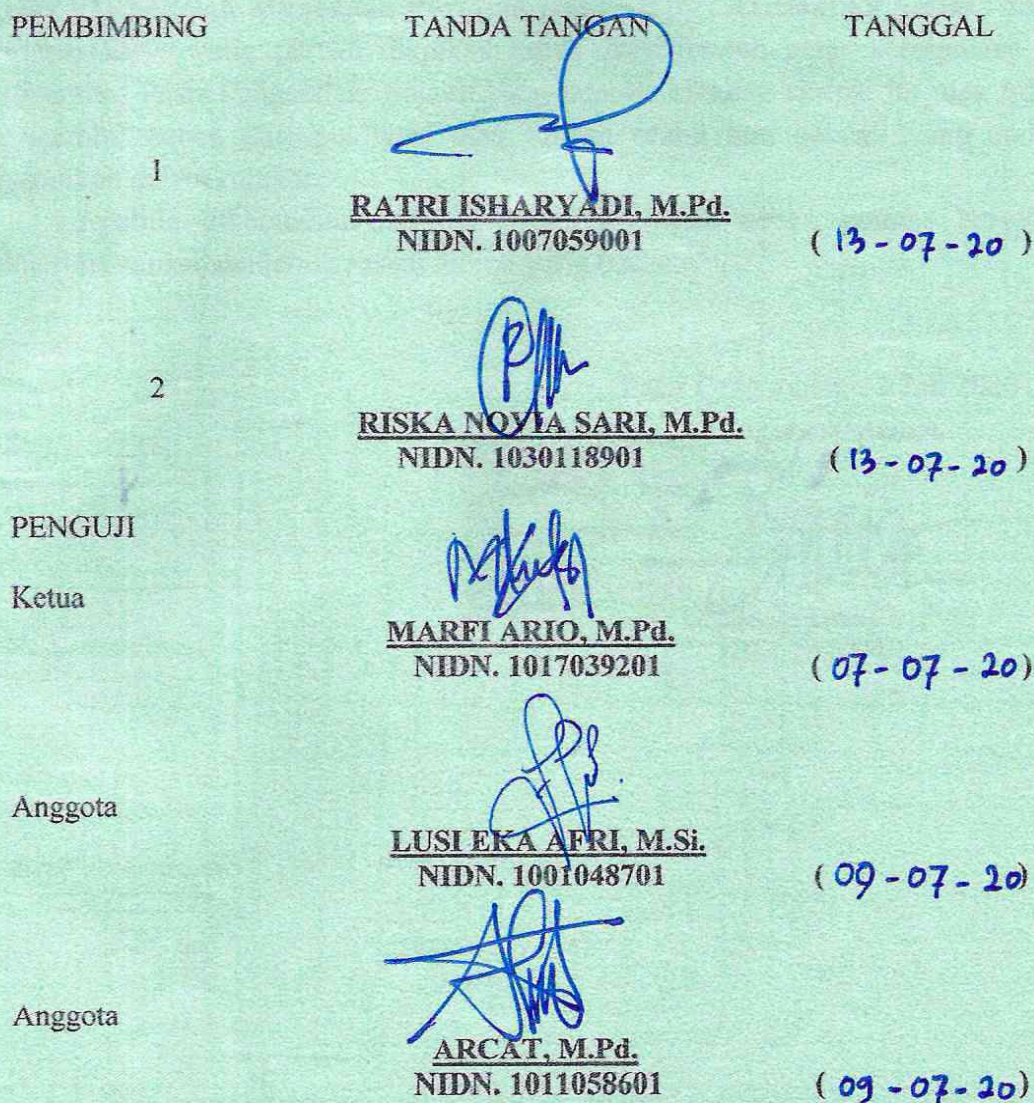 PEMBIMBING TANDA TANGAN TANGGAL
1
RATRI ISHARYADI, M.Pd.
NIDN. 1007059001 ( 13 - 07 - 20 )
2
RISKA NOVIA SARI, M.Pd.
NIDN. 1030118901 ( 13 - 07 - 20 )
PENGUJI
Ketua
MARFI ARIO, M.Pd.
NIDN. 1017039201 ( 07 - 07 - 20 )
Anggota
LUSI EKA AFRI, M.Si.
NIDN. 1001048701 ( 09 - 07 - 20 )
Anggota
ARCAT, M.Pd.
NIDN. 1011058601 ( 09 - 07 - 20 )